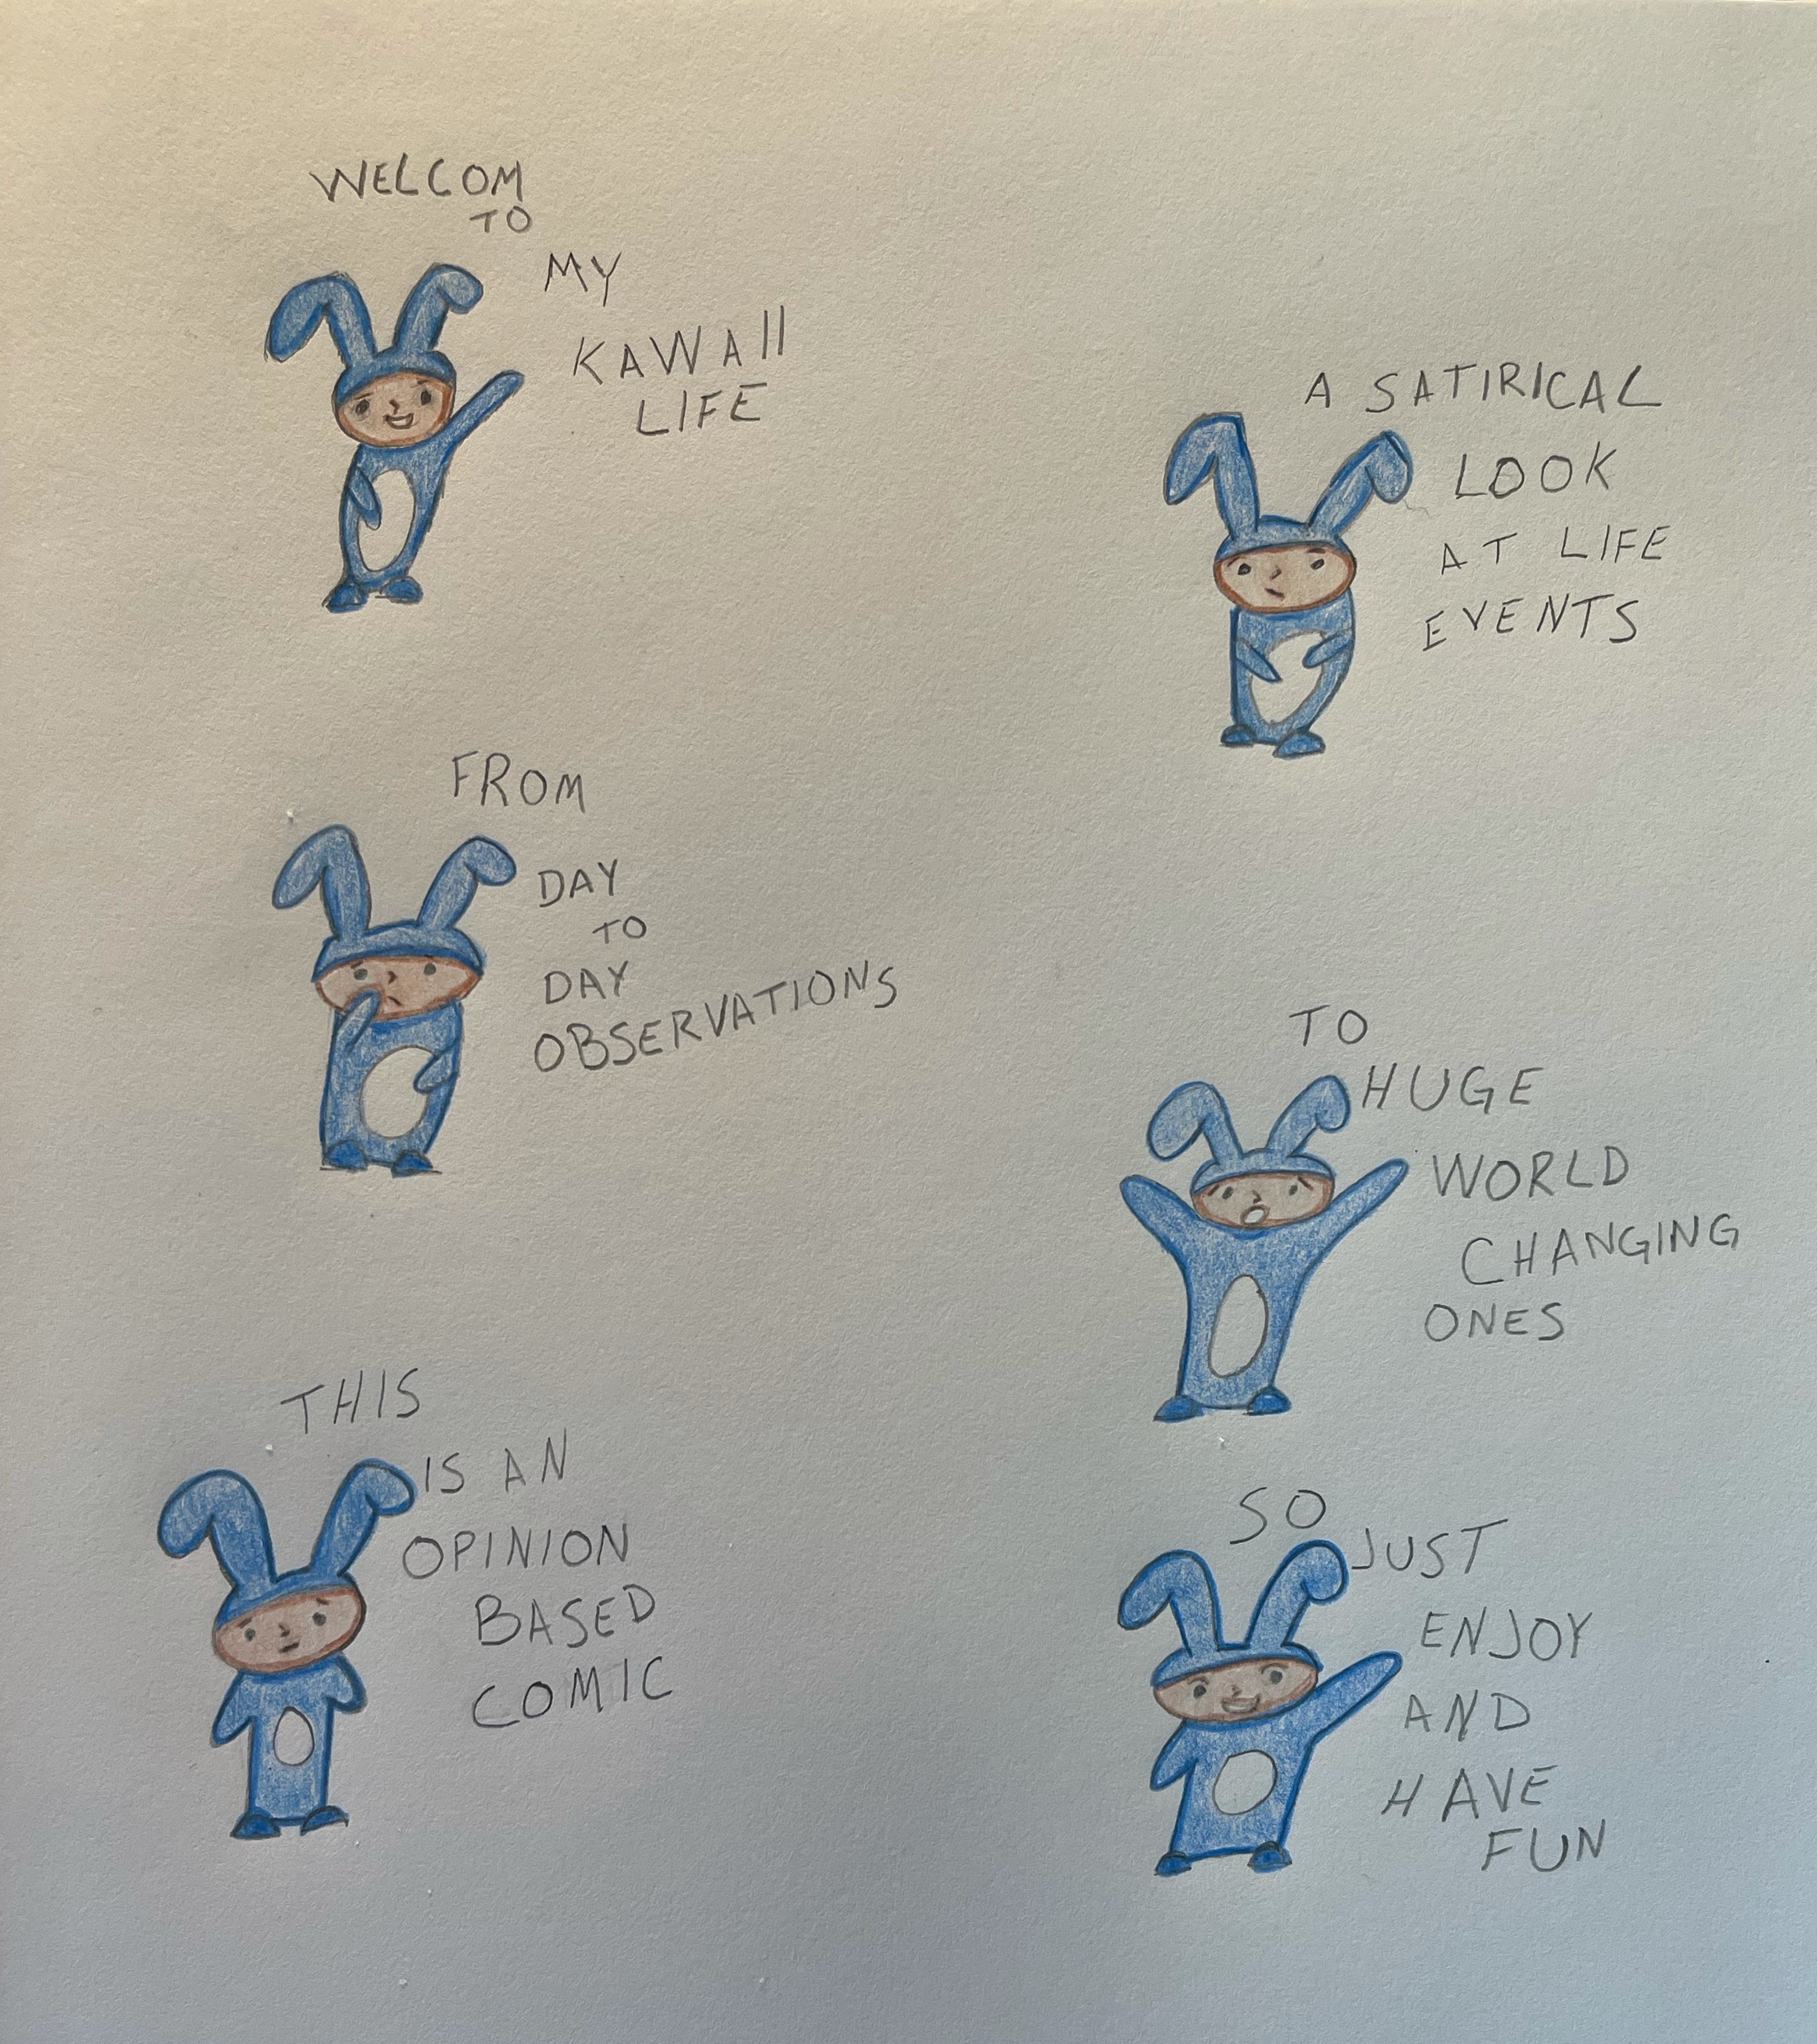 WELCOM
TO
MY
KAWAII
LIFE
A SATIRICAL
LOOK
AT LIFE
EVENTS
FROM
DAY
TO
DAY
OBSERVATIONS
TO
HUGE
WORLD
CHANGING
ONES
THIS
IS AN
OPINION
BASED
COMIC
SO
JUST
ENJOY
AND
HAVE
FUN